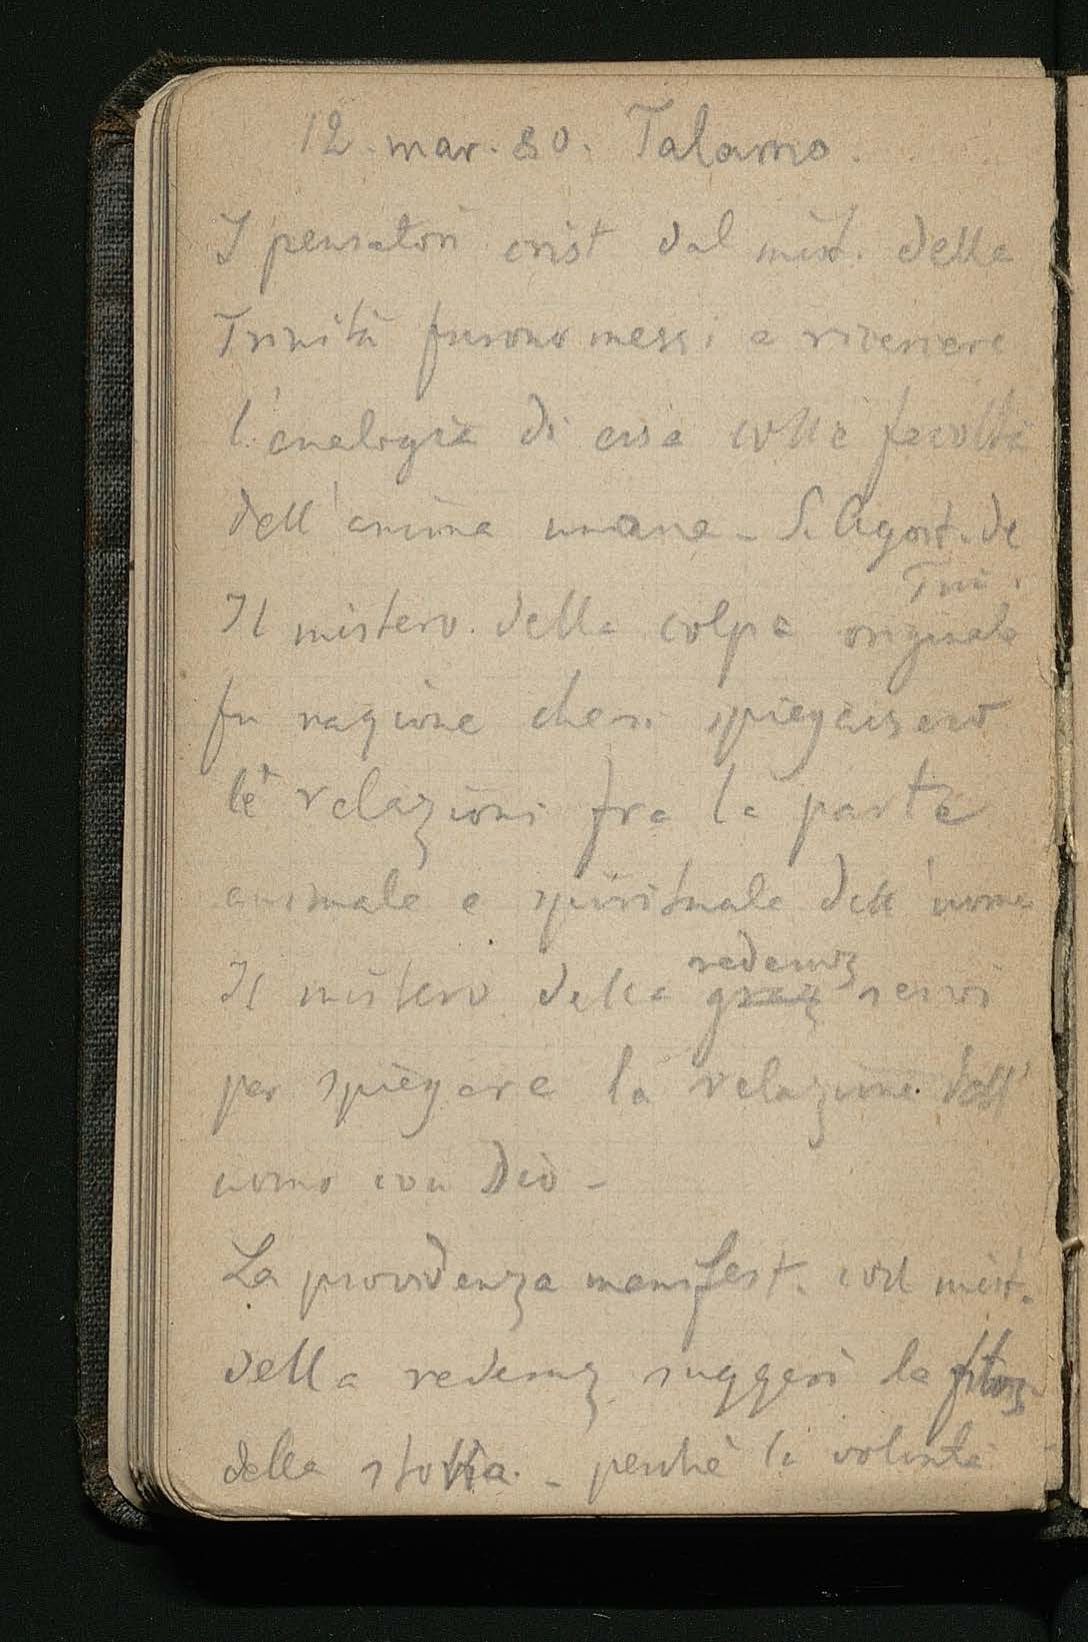 12. mar. 80. Talamo.
I pensatori crist dal mist. della
Trinità furono messi a rinvenire
l'analogia di essa colle facoltà
dell'anima umana - S. Agost. de
Trin.
Il mistero della colpa originale
fu ragione che si spiegassero
le relazioni fra la parte
animale e spirituale dell'uomo
Il mistero della graz redenz servì
per spiegare la relazione dell'
uomo con Dio -
La providenza manifest. col mist.
della redenz suggerì la
della storia. - perchè la volontà